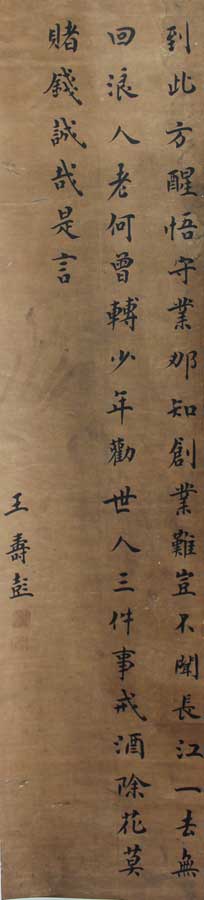 到此方醒悟守業那知創業難豈不聞長江一去無
回浪人老何曾轉少年勸世人三件事戒酒除花莫
賭錢誠哉是言
王壽彭